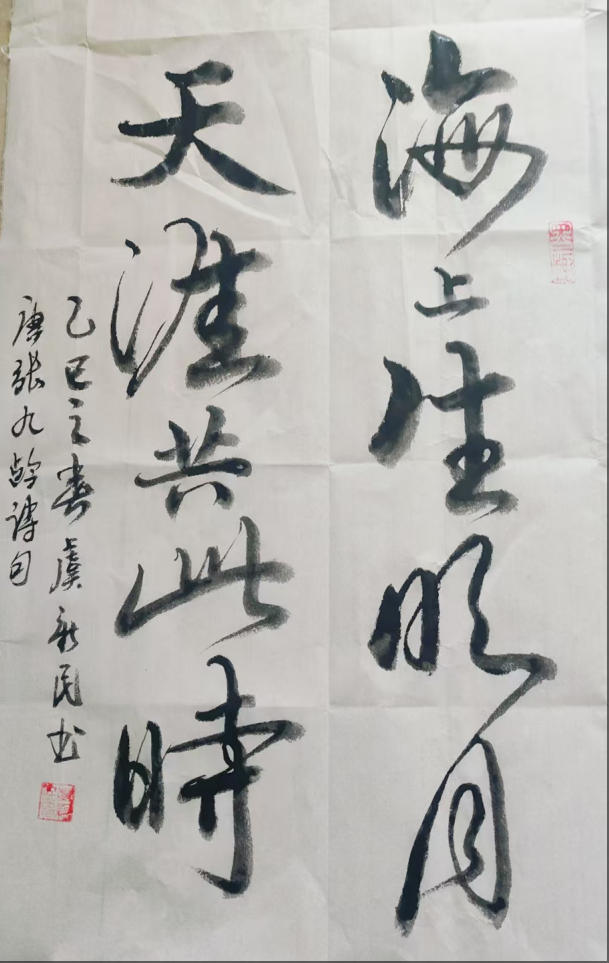 海上生明月
天涯共此时
乙巳之春虞新民书
唐张九龄诗句